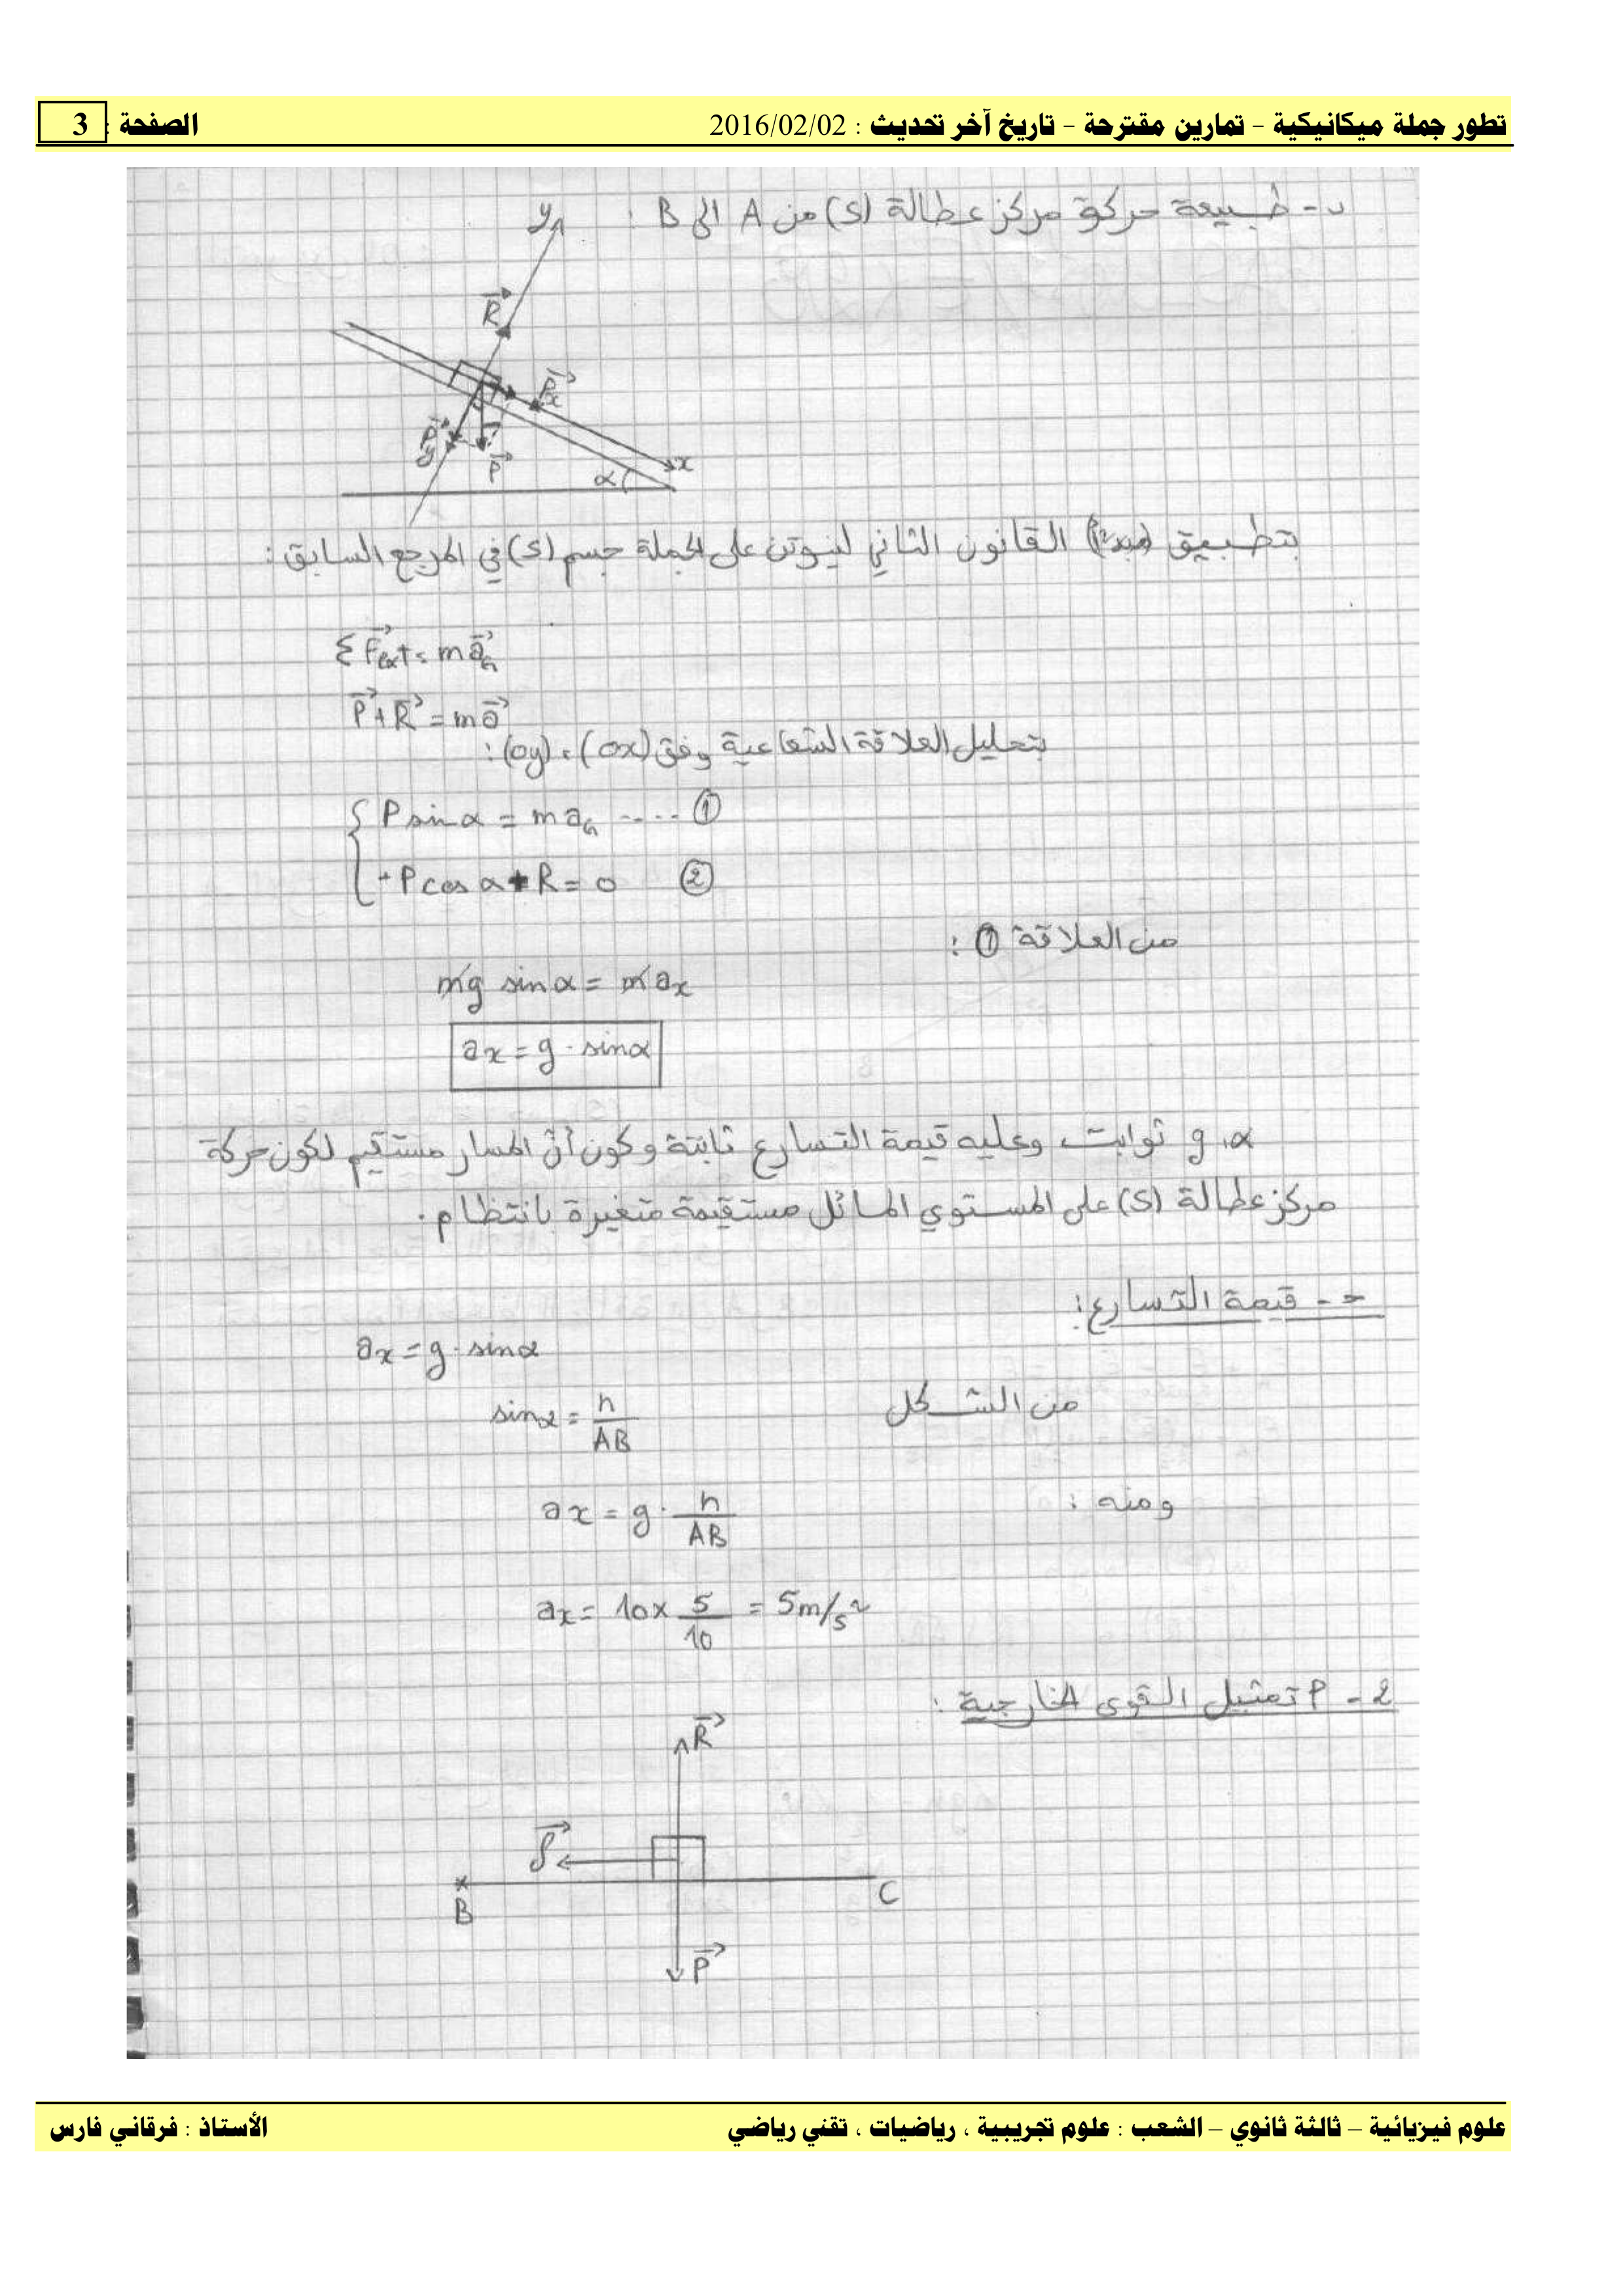 تطور جملة ميكانيكية - تمارين مقترحة - تاريخ آخر تحديث : 2016/02/02 الصفحة : 3
ب - طبيعة حركة مركز عطالة (S) من A الى B :
y
R
Px
Py
P
α
x
بتطبيق القانون الثاني لنيوتن على الجملة جسم (S) في المرجع السابق :
Σ F⃗ext = m a⃗G
P⃗ + R⃗ = m a⃗
بتحليل العلاقة الشعاعية وفق (ox) ، (oy) :
P sin α = m aG ---- ①
- P cos α + R = 0 ②
من العلاقة ① :
mg sin α = m ax
ax = g · sin α
α، g ثوابت وعليه قيمة التسارع ثابتة وكون أن المسار مستقيم لكون حركة
مركز عطالة (S) على المستوي المائل مستقيمة متغيرة بانتظام .
ج - قيمة التسارع :
ax = g · sin α
من الشكل sin α = h / AB
ومنه : ax = g · h / AB
ax = 10 × 5 / 10 = 5 m/s²
2 - أ تمثيل القوى الخارجية :
R⃗
f⃗
B
C
P⃗
علوم فيزيائية – ثالثة ثانوي – الشعب : علوم تجريبية ، رياضيات ، تقني رياضي الأستاذ : فرقاني فارس